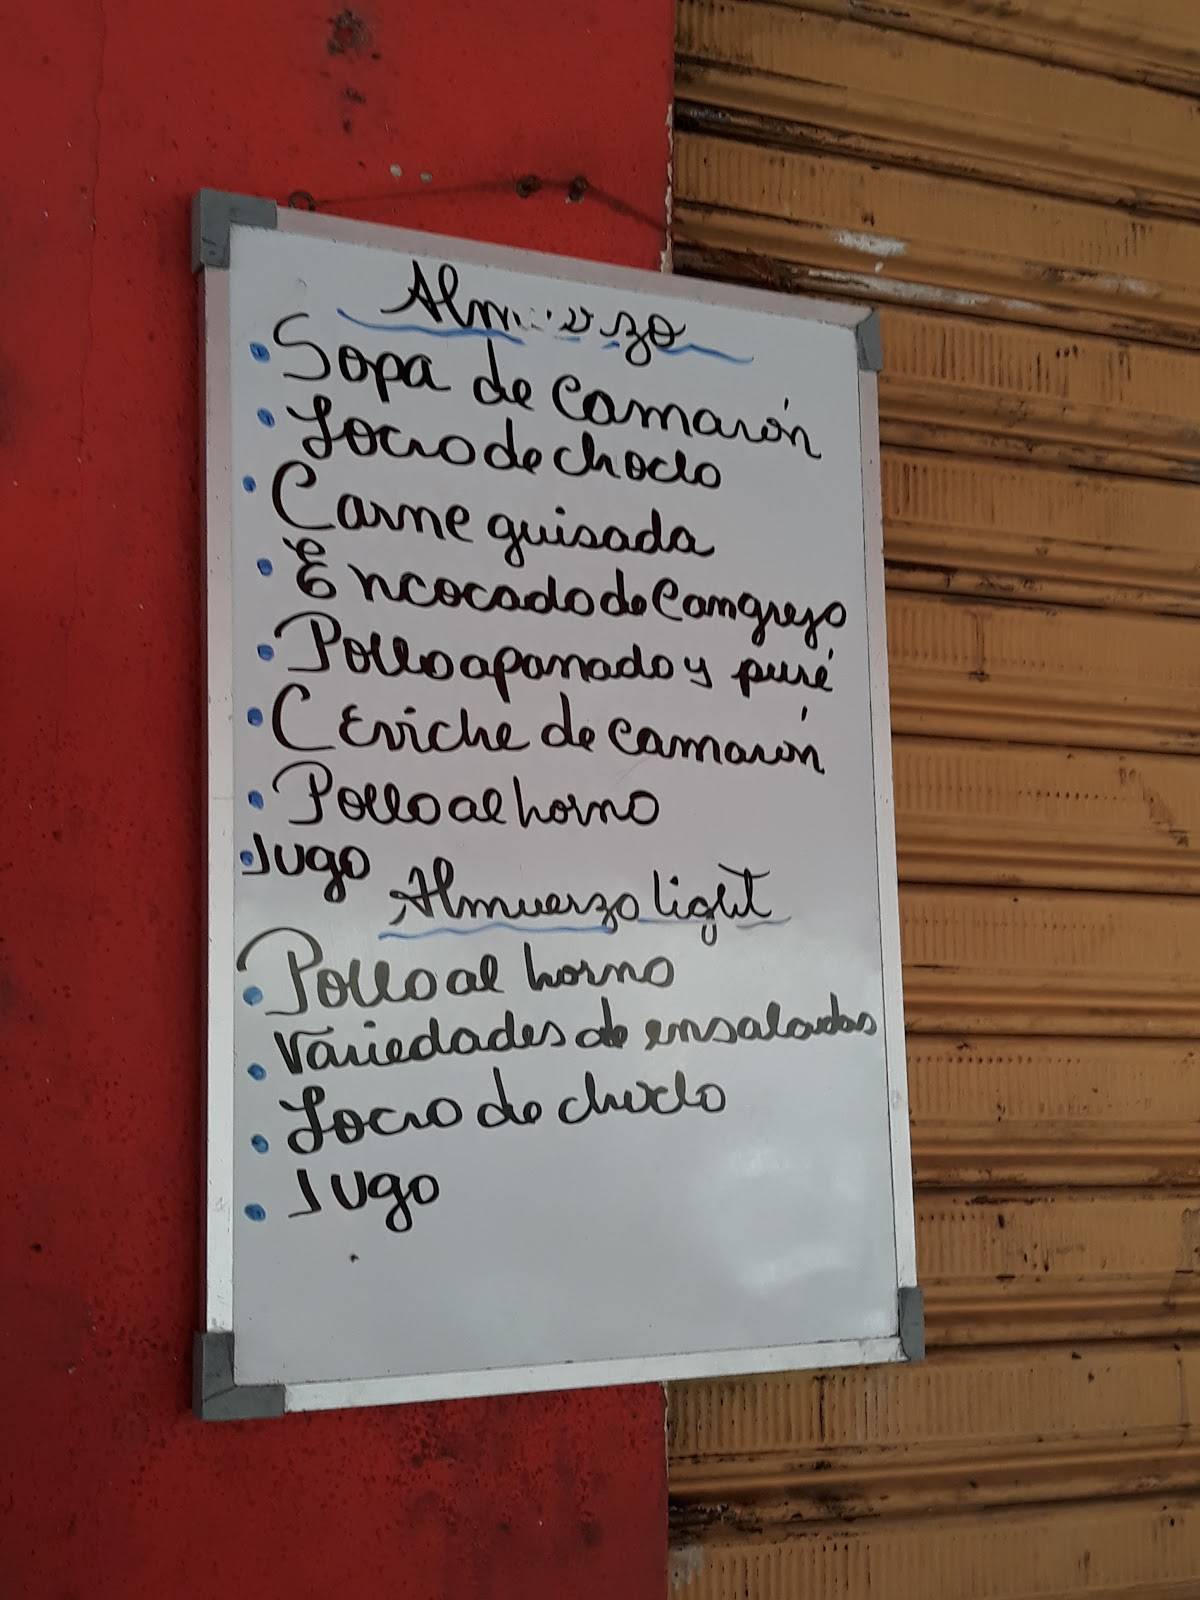 Almuerzo
• Sopa de Camarón
• Locro de choclo
• Carne guisada
• Encocado de Cangrejo
• Pollo apanado y puré
• Ceviche de camarón
• Pollo al horno
• Jugo
Almuerzo light
• Pollo al horno
• Variedades de ensaladas
• Locro de choclo
• Jugo